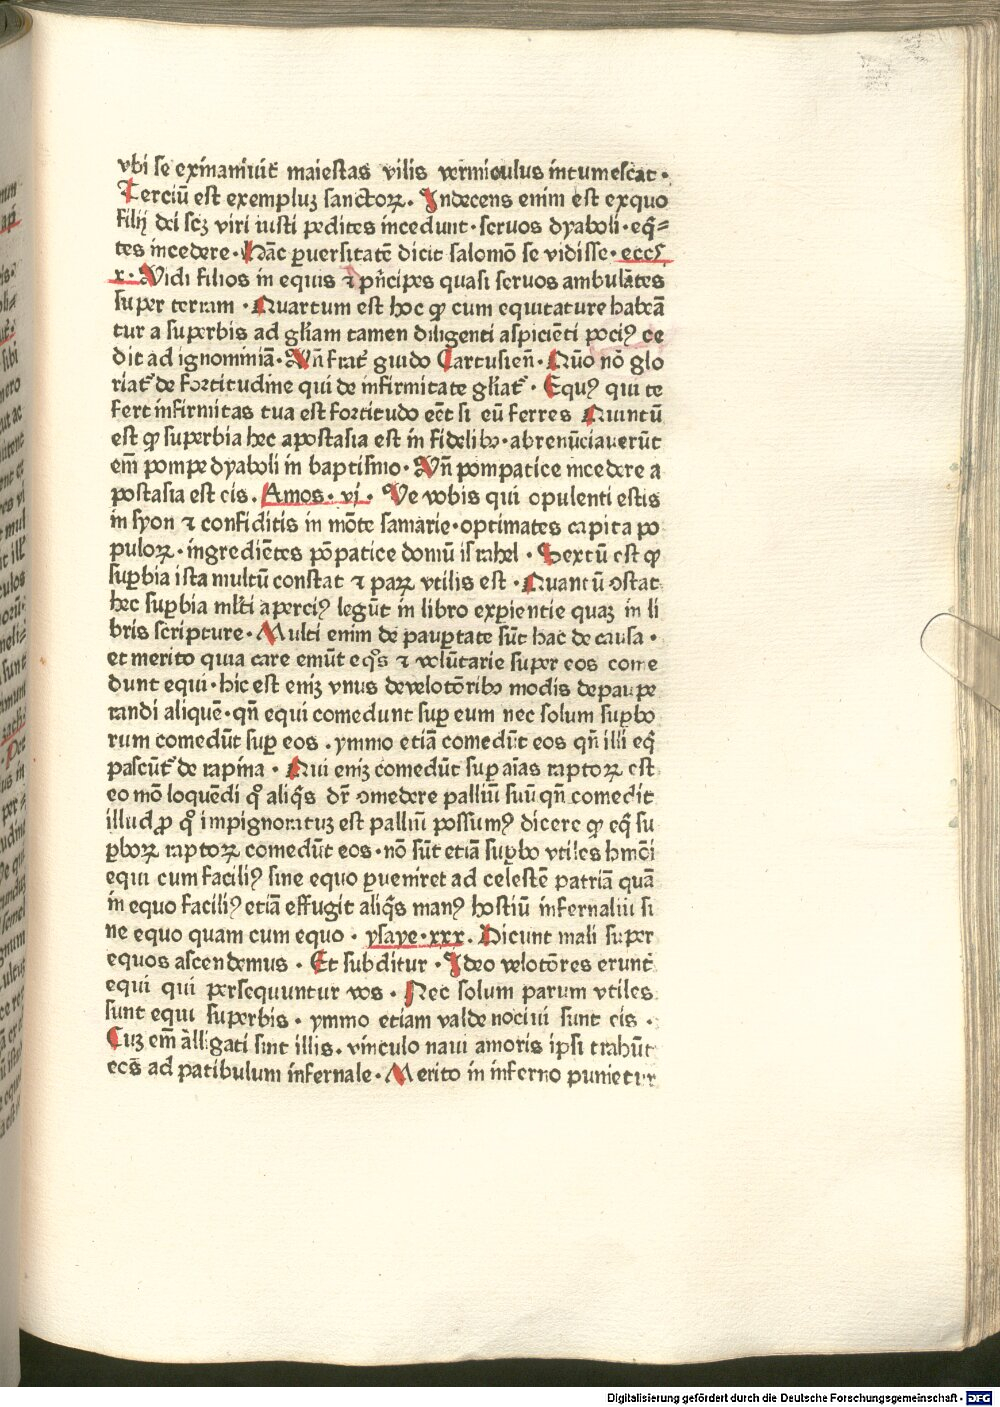 vbi se exinaniuit̄ maiestas vilis vermiculus intumescat ·
Terciū est exempluꝫ sanctoꝝ. Indecens enim est exquo
filij dei scꝫ viri iusti pedites incedunt · seruos dyaboli · eq̄⸗
tes incedere · Hāc ꝑuersitatē dicit salomō se vidisse · eccͥs
x · Vidi filios in equis ⁊ pͥncipes quasi seruos ambulātes
super terram · Quartum est hoc ꝙ cum equitature habeā
tur a superbis ad gl̄iam tamen diligenti aspiciēti pociꝰ ce
dit ad ignominiā · Vn̄ frat̄ guido Cartusien̄ · Quō nō glo
riat̄ de fortitudine qui de infirmitate gl̄iat̄ · Equꝰ qui te
fert infirmitas tua est fortitudo eēt si eū ferres Quintū
est ꝙ superbia hec apostasia est in fidelibꝫ · abrenūciauerūt
em̄ pompe dyaboli in baptismo · Vn̄ pompatice incedere a
postasia est eis. Amos · vi · Ve vobis qui opulenti estis
in syon ⁊ confiditis in mōte samarie · optimates capita po
puloꝝ · ingrediētes pōpatice domū israhel · Sextū est ꝙ
suꝑbia ista multū constat ⁊ paꝝ vtilis est · Quantū ꝯstat
hec suꝑbia ml̄ti aperciꝰ legūt in libro exꝑientie quaꝫ in li
bris scripture · Multi enim de pauꝑtate sūt hac de causa ·
et merito quia care emūt eqͦs ⁊ volūtarie super eos come
dunt equi · hic est eniꝫ vnus de velotōribꝫ modis depaupe
randi aliquē · qn̄ equi comedunt suꝑ eum nec solum suꝑbo
rum comedūt suꝑ eos · ymmo etiā comedūt eos qn̄ illi eq̄
pascūt̄ de rapina · Qui eniꝫ comedūt suꝑ aīas raptoꝝ est
eo mō loquēdi qͦ aliqͥs dr̄ ꝯmedere palliū suū qn̄ comedit
illud ꝓ qͦ impignoratuꝫ est palliū possumꝰ dicere ꝙ eq̄ su
ꝑboꝝ raptoꝝ comedūt eos · nō sūt etiā suꝑbo vtiles hmōi
equi cum faciliꝰ sine equo ꝑueniret ad celestē patriā quā
in equo faciliꝰ etiā effugit aliqͥs manꝰ hostiū infernaliū si
ne equo quam cum equo · ysaye · xxx. Dicunt mali super
equos ascendemus · Et subditur · Ideo velotōres erunt
equi qui persequuntur vos · Nec solum parum vtiles
sunt equi superbis · ymmo etiam valde nociui sunt eis ·
Cuꝫ em̄ alligati sint illis · vinculo naui amoris ipsi trahūt
eos ad patibulum infernale · Merito in inferno punietur
Digitalisierung gefördert durch die Deutsche Forschungsgemeinschaft - DFG